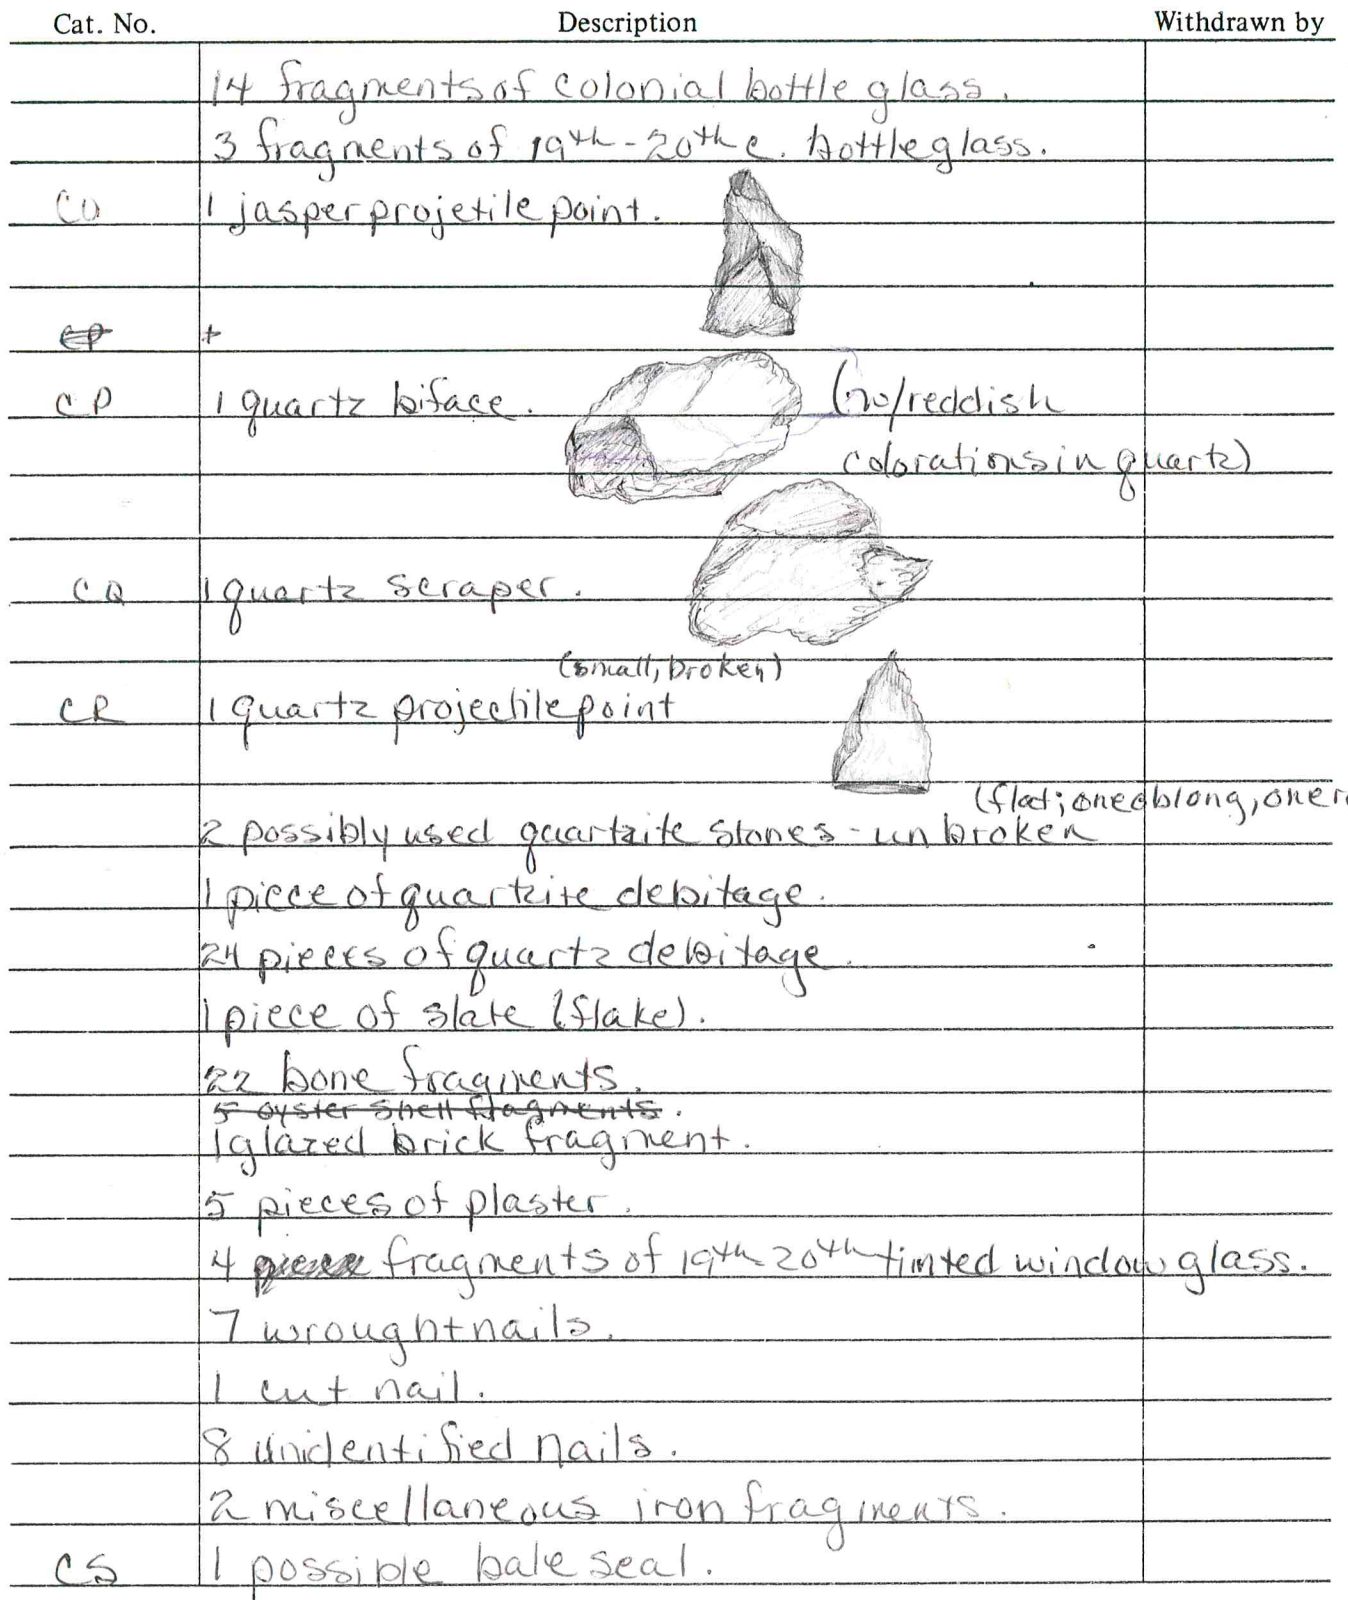 Cat. No. Description Withdrawn by
14 fragments of colonial bottle glass.
3 fragments of 19th-20th c. bottle glass.
CO 1 jasper projetile point.
CP 1 quartz biface. (w/reddish
colorations in quartz)
CQ 1 quartz scraper.
(small, broken)
CR 1 quartz projectile point
(flat; one oblong, one r
2 possibly used quartzite stones - unbroken
1 piece of quartzite debitage.
24 pieces of quartz debitage.
1 piece of slate (flake).
22 bone fragments.
5 oyster shell fragments.
1 glazed brick fragment.
5 pieces of plaster.
4 fragments of 19th-20th tinted window glass.
7 wrought nails.
1 cut nail.
8 unidentified nails.
2 miscellaneous iron fragments.
CS 1 possible bale seal.